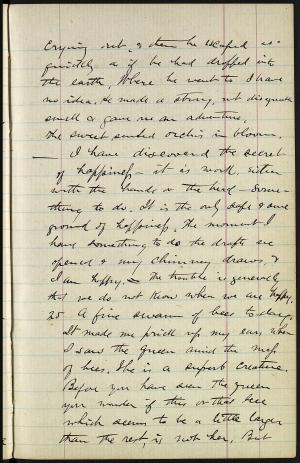 crying out, & then he escaped as
quickly as if he had dropped into
the earth. Where he went to I have
no idea. He made a strong, not disagreeable
smell & gave me an adventure.
The sweet scented orchis in bloom.
— I have discovered the secret
of happiness – it is work, either
with the hands or the head – some-
thing to do. It is the only safe & sure
ground of happiness. The moment I
have something to do the drafts are
opened & my chimney draws, &
I am happy. – The trouble is generally
that we do not know when we are happy.
25 A fine swarm of bees to-day.
It made me prick up my ears when
I saw the queen amid the mass
of bees. She is a superb creature.
Before you have seen the queen
you wonder if this or that bee
which seems to be a little larger
than the rest, is not her, But